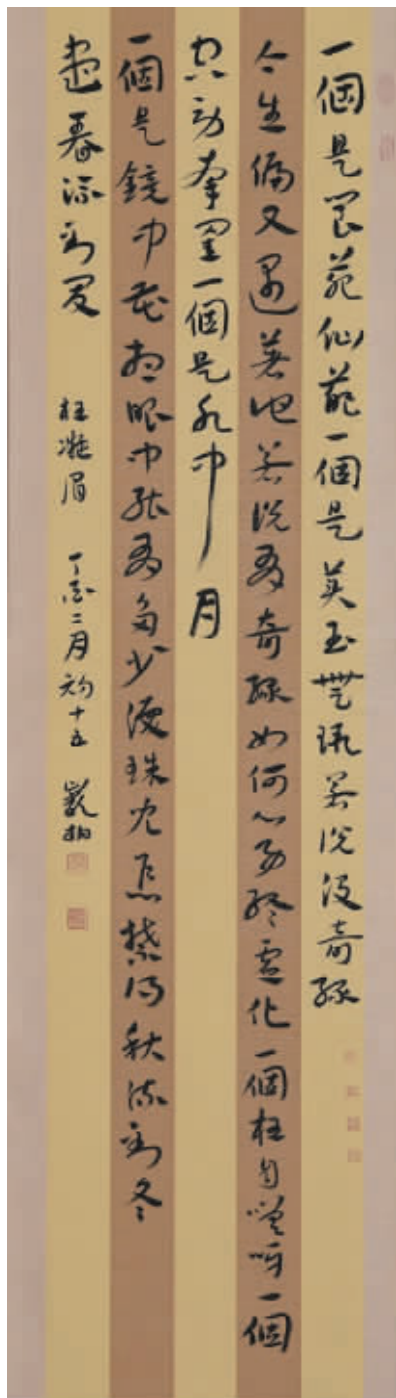 一個是閬苑仙葩一個是美玉無瑕若說沒奇緣
今生偏又遇著他若說有奇緣如何心事終虛化一個枉自嗟呀一個
空勞牽罣一個是水中月
一個是鏡中花想眼中能有多少淚珠兒怎禁得秋流到冬
盡春流到夏 枉凝眉 丁酉二月初十五